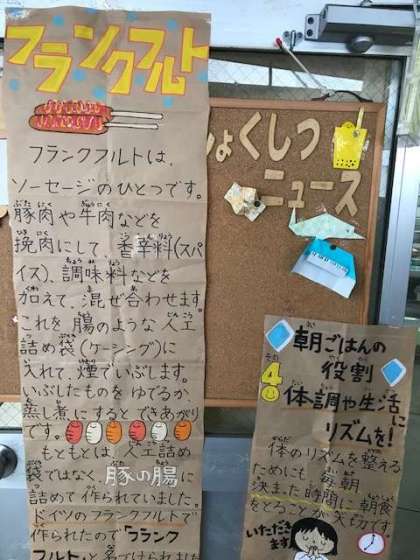 フランクフルト
フランクフルトは、
ソーセージのひとつです。
豚肉や牛肉などを
挽肉にして、香辛料(スパ
イス)、調味料などを
加えて、混ぜ合わせます。
これを腸のような人工
詰め袋(ケーシング)に
入れて、煙でいぶします。
いぶしたものをゆでるか、
蒸し煮にするとできあがり
です。
もともとは、人工詰め
袋ではなく、豚の腸に
詰めて作られていました。
ドイツのフランクフルトで
作られたので「フランク
フルト」と名づけられました
ょくしつ
ニュース
朝ごはんの
役割
その4
体調や生活に
リズムを!
体のリズムを整える
ためにも、毎朝
決まった時間に朝食
をとることが大切です。
いただき
ます!